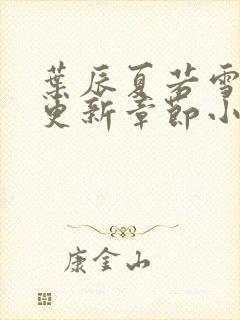 葉辰夏若雪
更新章節小
康金山